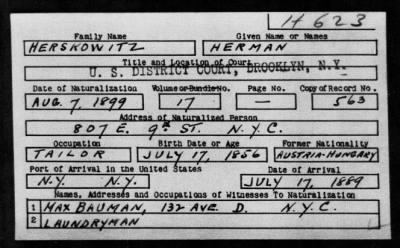 H623
Family Name Given Name or Names
HERSKOWITZ HERMAN
Title and Location of Court
U. S. DISTRICT COURT, BROOKLYN, N.Y.
Date of Naturalization Volume or Bundle No. Page No. Copy of Record No.
AUG. 7, 1899 17 — 563
Address of Naturalized Person
807 E. 9TH ST. N.Y.C.
Occupation Birth Date or Age Former Nationality
TAILOR JULY 17, 1856 AUSTRIA-HUNGARY
Port of Arrival in the United States Date of Arrival
N.Y. N.Y. JULY 17, 1889
Names, Addresses and Occupations of Witnesses To Naturalization
1 MAX BAUMAN, 132 AVE. D. N.Y.C.
2 LAUNDRYMAN